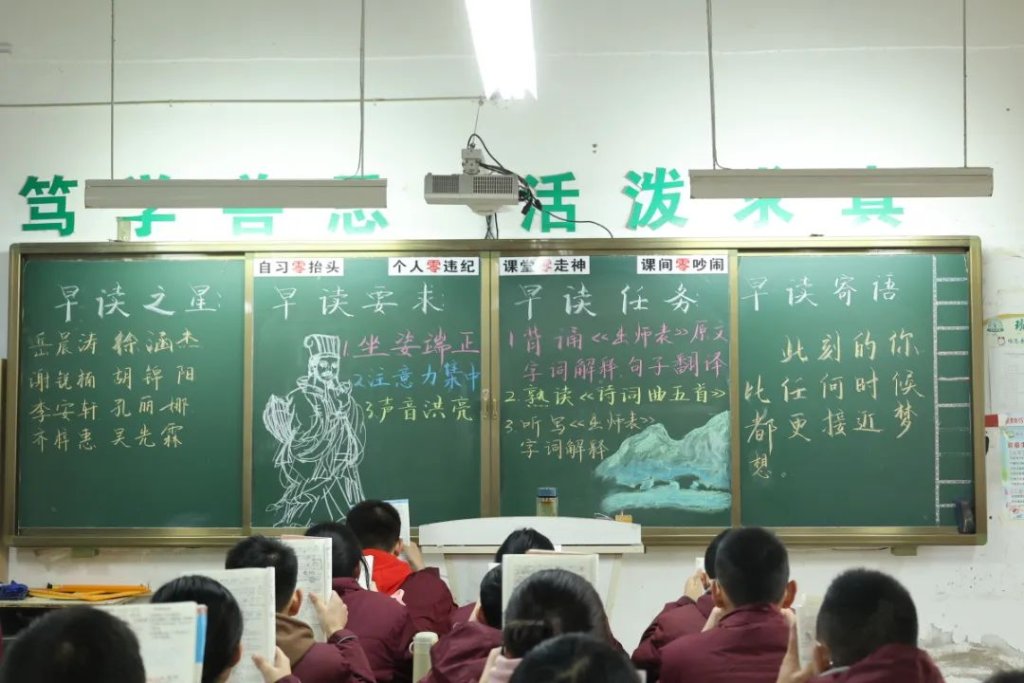 笃学善思 活泼求真
自习零抬头
个人零违纪
课堂零走神
课间零吵闹
早读之星
岳晨涛 徐涵杰
谢锐楠 胡锦阳
李安轩 孔丽娜
乔梓惠 吴先霖
早读要求
1.坐姿端正
2.注意力集中
3声音洪亮
早读任务
1背诵《出师表》原文
字词解释.句子翻译
2.熟读《诗词曲五首》
3.听写《出师表》
字词解释
早读寄语
此刻的你
比任何时候
都更接近梦
想。